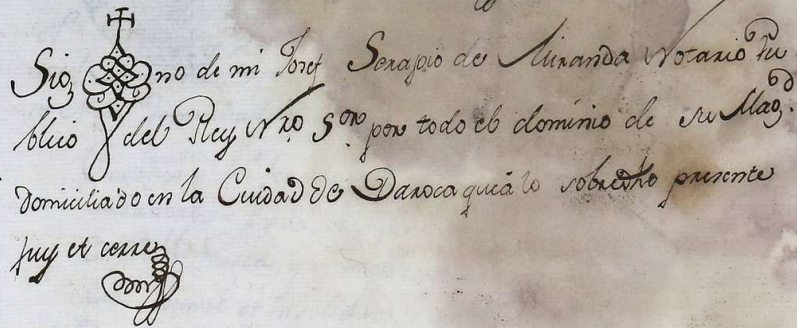 Sig no de mi Josef Serapio de Miranda Notario Pu
blico del Rey Nro. Sor. por todo el dominio de su Magd.
domiciliado en la Cuidad de Daroca quiā lo sobredho presente
fuy et cerre